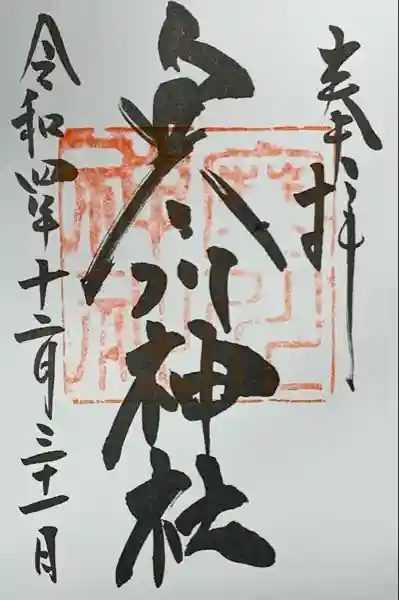 奉拝
寒川神社
令和四年十二月三十一日